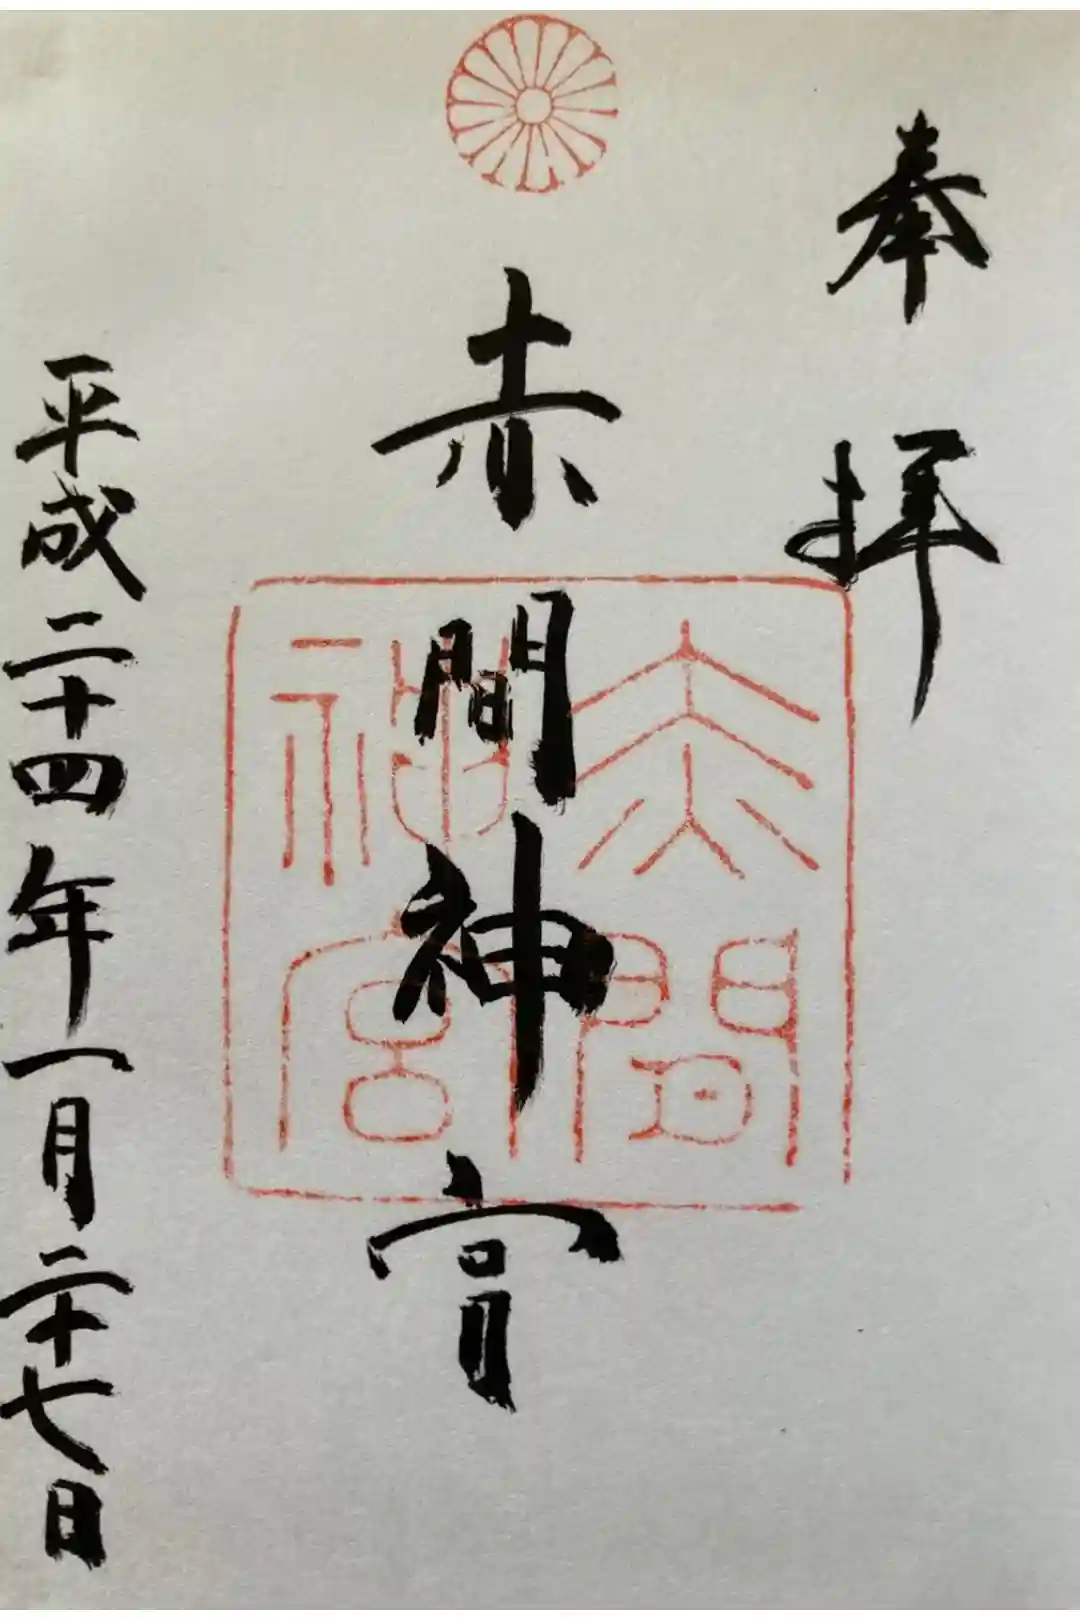 奉拝
赤間神宮
平成二十四年一月二十七日
赤間
神宮